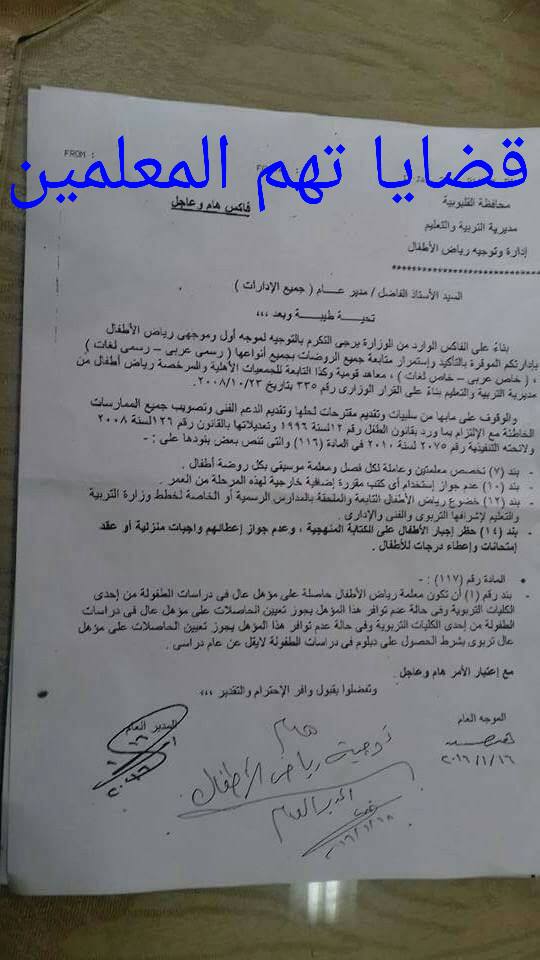 FROM :
قضايا تهم المعلمين
محافظة القليوبية
فاكس هام وعاجل
مديرية التربية والتعليم
إدارة وتوجيه رياض الأطفال
السيد الأستاذ الفاضل / مدير عـــام ( جميع الإدارات )
تحيـــة طيبـــة وبعد ،،،
بناءً علي الفاكس الوارد من الوزارة يرجى التكرم بالتوجيه لموجه أول وموجهى رياض الأطفال
بإدارتكم الموقرة بالتأكيد وإستمرار متابعة جميع الروضات بجميع أنواعها ( رسمى عربى – رسمى لغات )
، ( خاص عربى – خاص لغات ) ، معاهد قومية وكذا التابعة للجمعيات الأهلية والمرخصة رياض أطفال من
مديرية التربية والتعليم بناءً على القرار الوزارى رقم ٣٣٥ بتاريخ ٢٠٠٨/١٠/٢٣ .
والوقوف على مابها من سلبيات وتقديم مقترحات لحلها وتقديم الدعم الفنى وتصويب جميع الممارسات
الخاطئة مع الإلتزام بما ورد بقانون الطفل رقم ١٢ لسنة ١٩٩٦ وتعديلاتها بالقانون رقم ١٢٦ لسنة ٢٠٠٨
ولائحته التنفيذية رقم ٢٠٧٥ لسنة ٢٠١٠ في المادة (١١٦) والتى تنص بعض بنودها على :-
- بند (٧) تخصص معلمتين وعاملة لكل فصل ومعلمة موسيقي بكل روضة أطفال .
- بند (١٠) عدم جواز إستخدام أى كتب مقررة إضافية خارجية لهذه المرحلة من العمر .
- بند (١٢) خضوع رياض الأطفال التابعة والملحقة بالمدارس الرسمية أو الخاصة لخطط وزارة التربية
والتعليم لإشرافها التربوى والفنى والإدارى .
- بند (١٤) حظر إجبار الأطفال على الكتابة المنهجية ، وعدم جواز إعطائهم واجبات منزلية أو عقد
إمتحانات وإعطاء درجات للأطفال .
• المادة رقم (١١٧) :-
- بند رقم (١) أن تكون معلمة رياض الأطفال حاصلة على مؤهل عال فى دراسات الطفولة من إحدى
الكليات التربوية وفى حالة عدم توافر هذا المؤهل يجوز تعيين الحاصلات على مؤهل عال فى دراسات
الطفولة من إحدى الكليات التربوية وفى حالة عدم توافر هذا المؤهل يجوز تعيين الحاصلات على مؤهل
عال تربوى بشرط الحصول على دبلوم فى دراسات الطفولة لايقل عن عام دراسى .
مع إعتبار الأمر هام وعاجل .
وتفضلوا بقبول وافر الإحترام والتقدير ،،،
الموجه العام
المدير العام
٢٠١٦/١/١٦
هام
توجيه رياض الأطفال
المدير العام